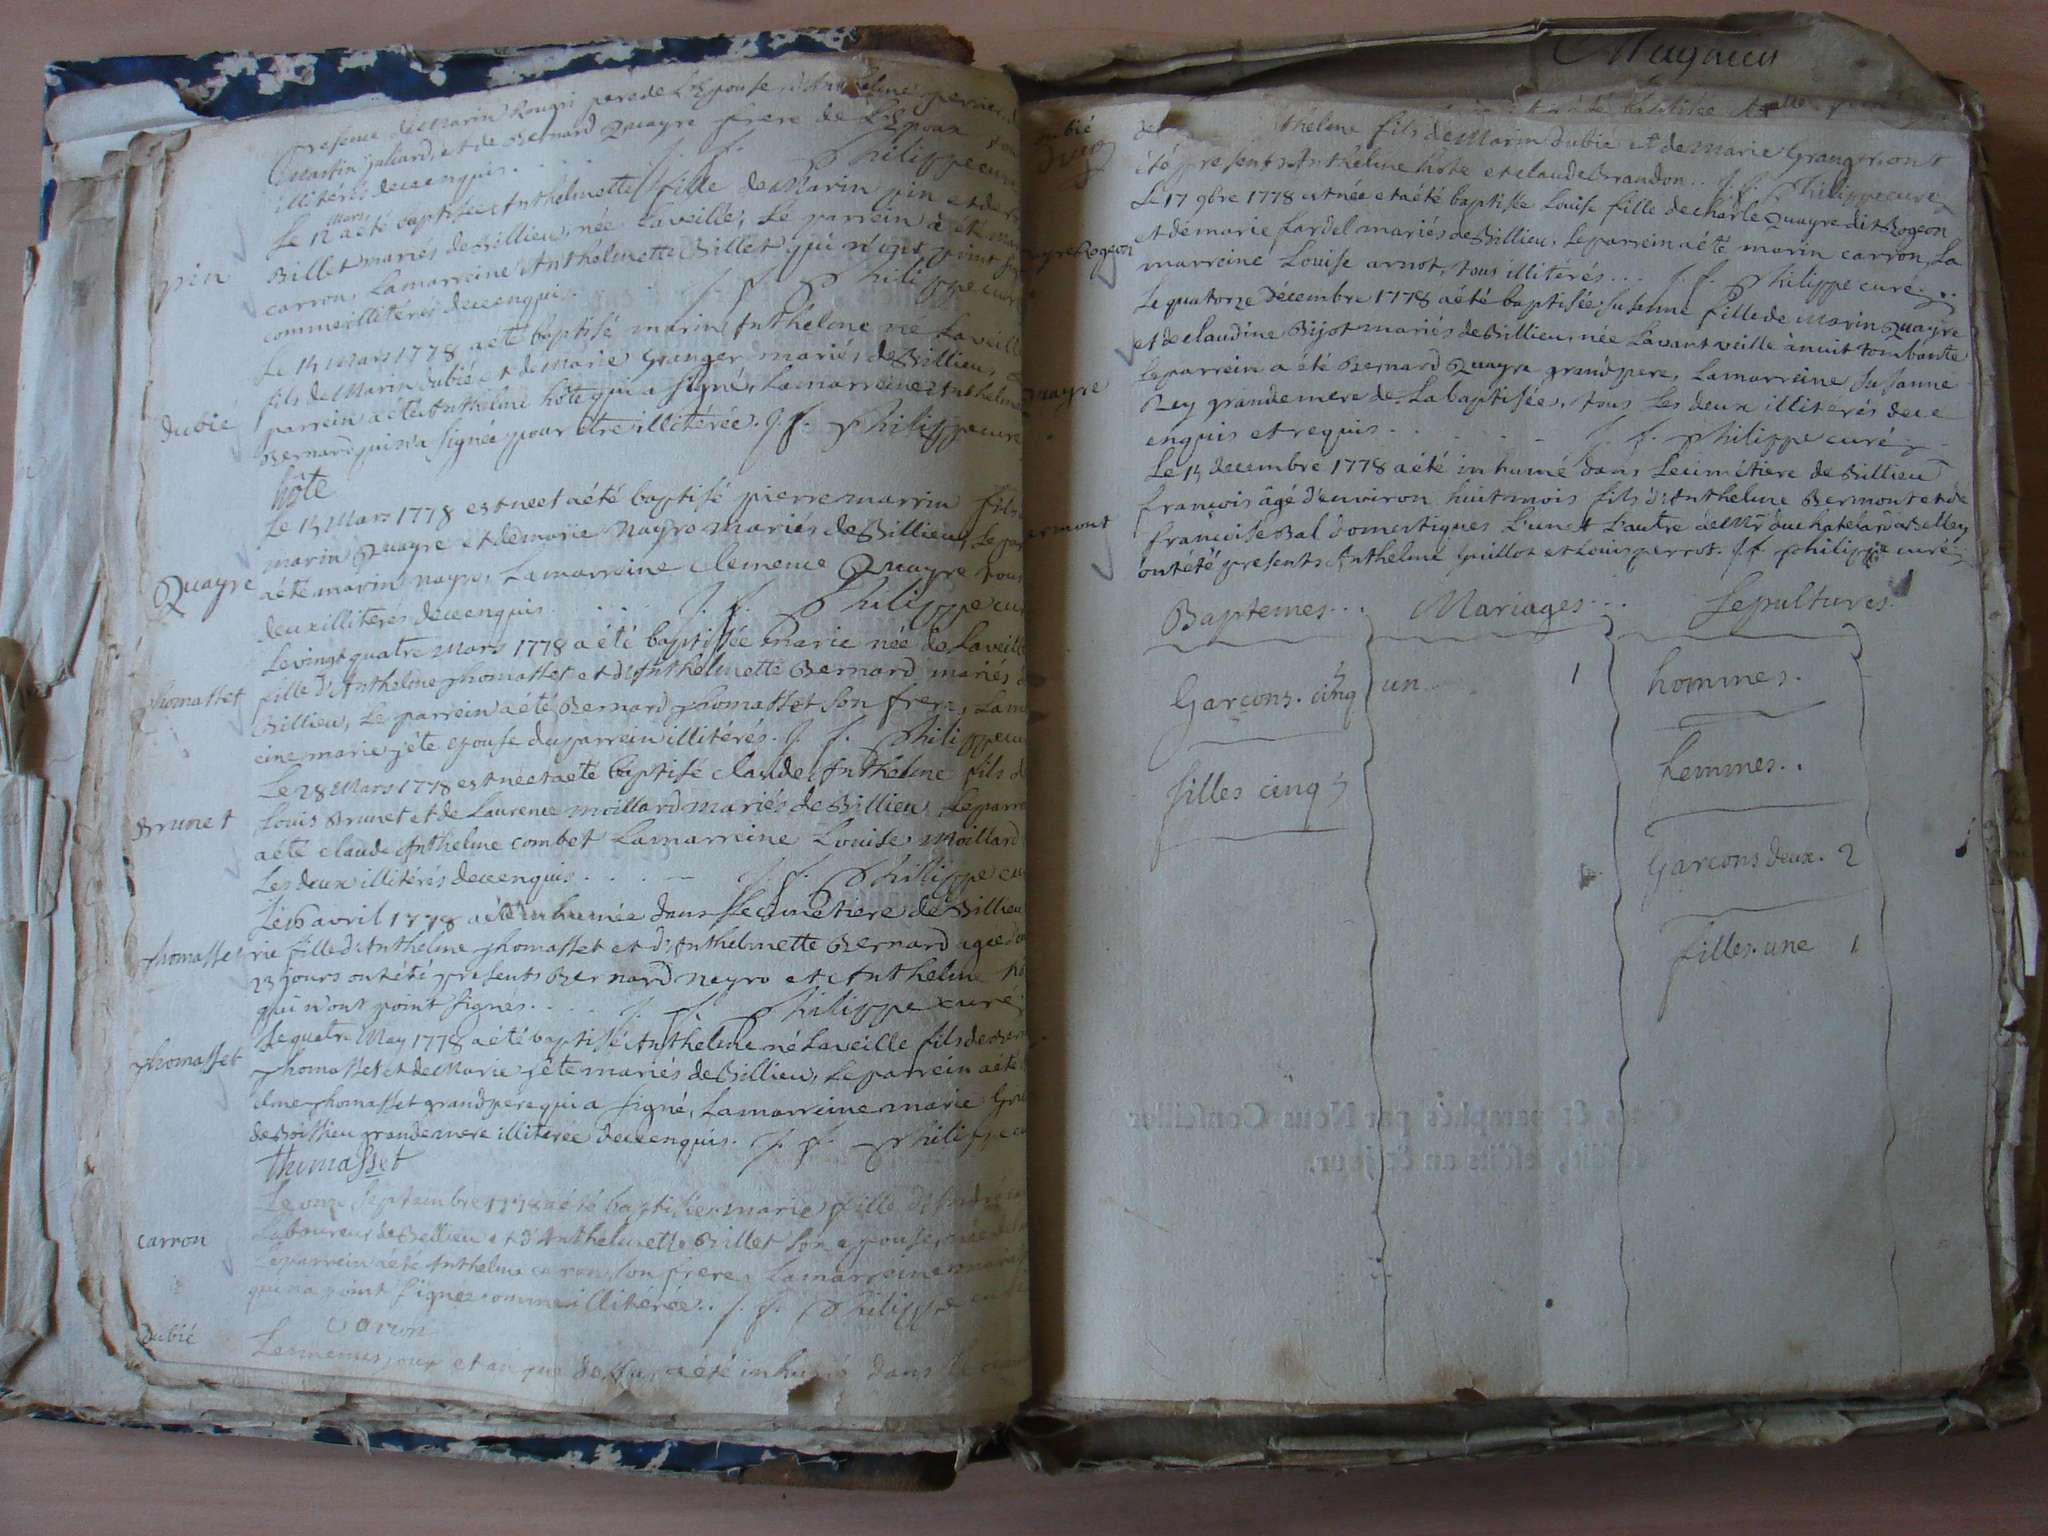 presence de Marin Rougi pere de L'Epouse, d'Anthelme
Martin juliard, et de Bernard Quayre frere de L'Epoux
illitérés de ce enquis. J. f. Philippe curé
Le 12 mars a été baptisée Anthelmette fille de Marin pin et de
Billet mariés de Billieu, née La veille, Le parrein a été
pin
carron, La marreine Anthelmette Billet qui n'ont point
comme illitérés de ce enquis. J. f. Philippe curé
Le 14 Mars 1778 a été baptisé marin Anthelme né La veille
fils de Marin dubié et de Marie Granger mariés de Billieu,
dubié
parrein a été Anthelme hôte qui a signé, La marreine Anthelme
Bernard qui n'a signée pour etre illitérée. J. f. Philippe curé
hôte
Le 15 Mars 1778 est né et a été baptisé pierre marrin fils
marin Quayre et de marie nayro mariés de Billieu, Le par
Quayre
a été marin nayro, La marreine Clemence Quayre tous
deux illitérés de ce enquis. J. f. Philippe cu
Le vingt quatre Mars 1778 a été baptisée Marie née de La veille
Thomasset
fille d'Anthelme Thomasset et d'Anthelmette Bernard mariés d
Billieu, Le parrein a été Bernard Thomasset son frere, La
eine marie jéte epouse du parrein illitérés. J. f. Philippe cu
Le 28 Mars 1778 est né et a été baptisé claude Anthelme fils d
Brunet
Louis Brunet et de Laurence moillard mariés de Billieu, Le parre
a été claude Anthelme combet La marreine Louise Moillard
Les deux illitérés de ce enquis. J. f. Philippe cu
Le 16 avril 1778 a été inhumée dans Le cimetiere de Billieu
Thomasset
rie fille d'Anthelme Thomasset et d'Anthelmette Bernard agée d'en
23 jours ont été presents Bernard neyro et Anthelme
qui n'ont point signes. J. f. Philippe curé
Le quatre May 1778 a été baptisé Anthelme né La veille fils de Ber
Thomasset
Thomasset et de Marie jéte mariés de Billieu, Le parrein a été
elme Thomasset grand pere qui a signé, La marreine marie
grande mere illiterée de ce enquis. J. f. Philippe cu
thomasset
Le onze Septembre 1778 a été baptisée marie fille d'André
carron
Laboureur de Billieu et d'Anthelmette Billet son epouse, née
Le parrein a été Anthelme caron son frere, La marreine marie
qui n'a point signé comme illitérée. J. f. Philippe cu
caron
dubié
Le meme jour et an que dessus a été inhumé dans Le cim
Mugnier
dubié
thelme fils de Marin dubié et de Marie Granger, ont
été presents Anthelme hôte et claude Brandon. J. f. Philippe curé
Le 17 9bre 1778 est née et a été baptisée Louise fille de charle Quayre dit Rogeon
et de marie fardel mariés de Billieu, Le parrein a été marin carron, La
ayre Rogeon
marreine Louise arnot, tous illitérés... J. f. Philippe curé
Le quatorze décembre 1778 a été baptisée Susanne fille de Marin Quayre
et de claudine Bijot mariés de Billieu, née L'avant veille à nuit tombante
Le parrein a été Bernard Quayre grand pere, La marreine Susanne
quayre
Rey grande mere de La baptisée, tous Les deux illitérés de ce
enquis et requis. J. f. Philippe curé
Le 15 decembre 1778 a été inhumé dans Le cimétiere de Billieu
françois âgé d'environ huit mois fils d'Anthelme Bermont et de
ermont
françoise Bal domestiques L'un et L'autre de Mr duchatelard a Belley
ont été presents Anthelme Guillot et Louis perrot. J. f. Philippe curé
Baptemes... Mariages... Sepultures.
Garçons. cinq 5 un 1 hommes.
femmes..
filles cinq 5
Garcons deux. 2
filles. une 1